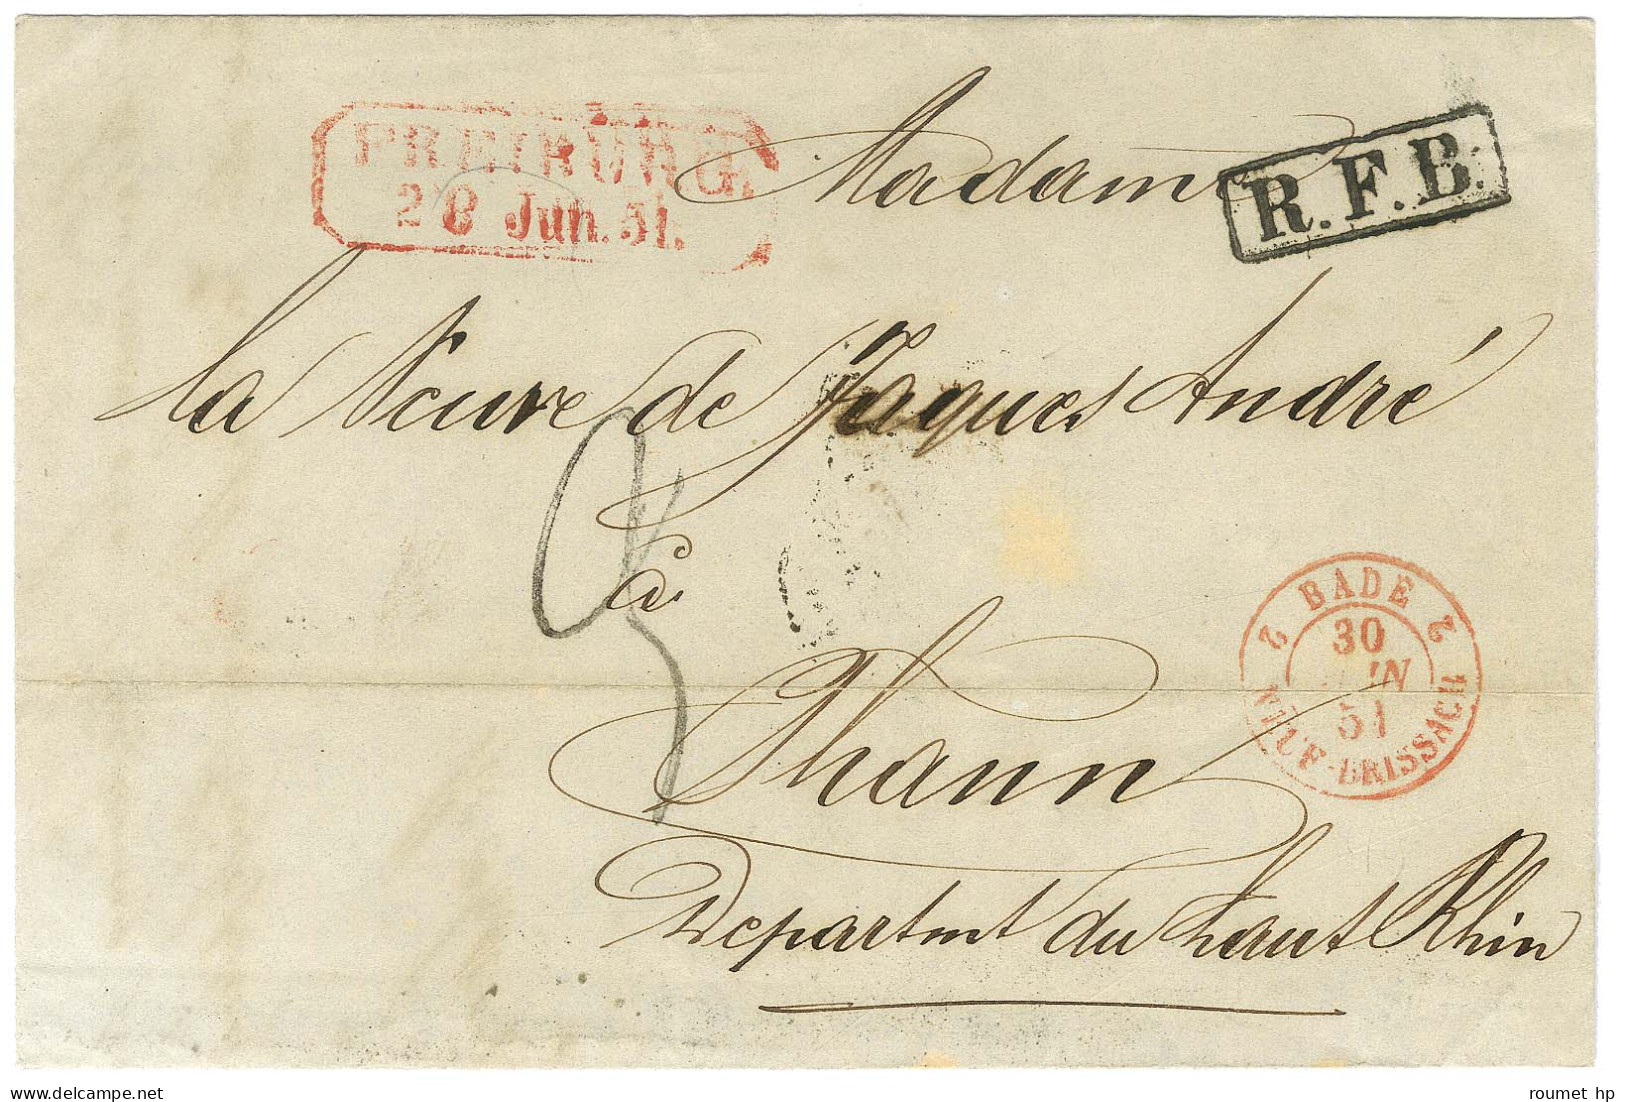 FREIBURG.
28 Jun. 51.
R.F.B.
Madame
la Veuve de Jaques André
à
Thann
Departmt du haut Rhin
2 BADE 2
30
JUIN
51
NEUF-BRISSACH
roumet hp